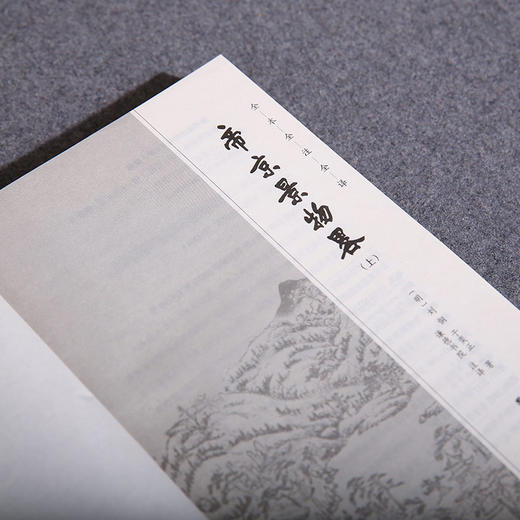 全本全注全译
帝京景物畧
（上）
［明］刘侗 于奕正 著
谦德书院 注译